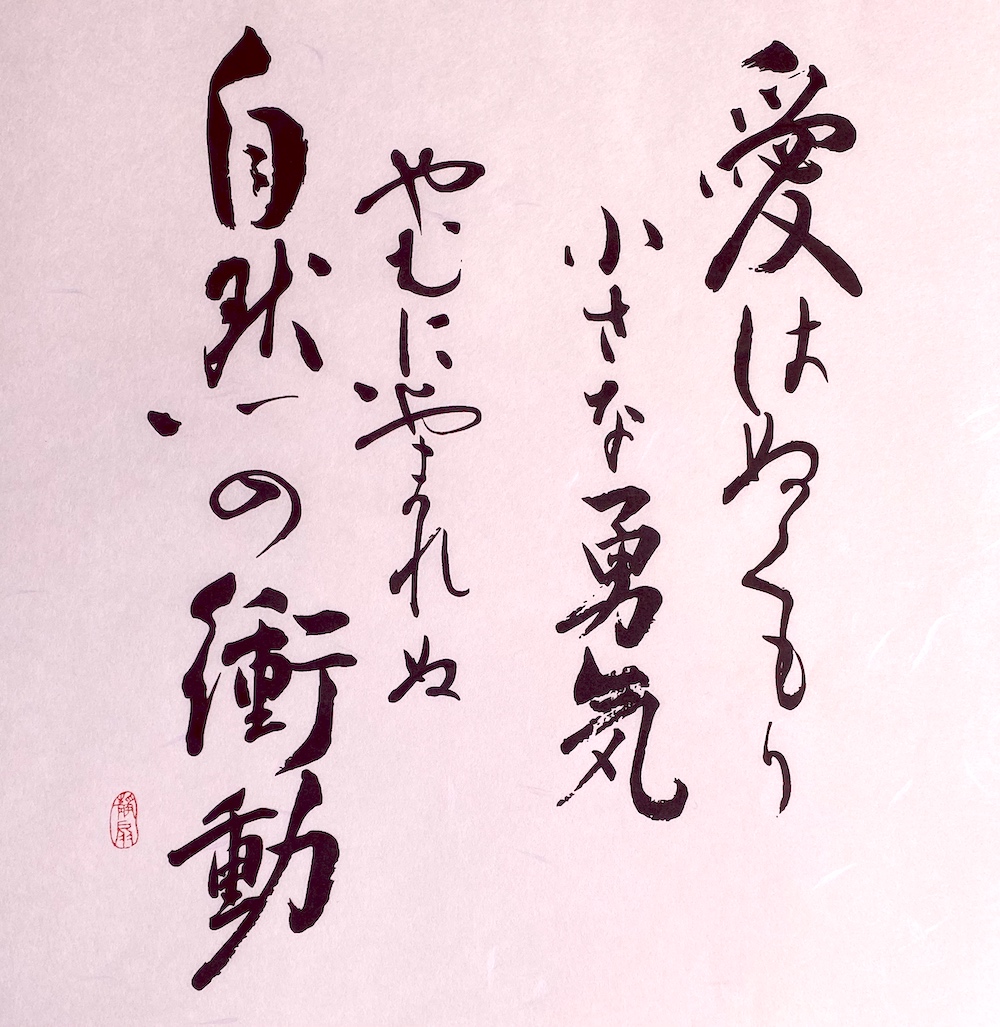 愛はぬくもり
小さな勇気
やむにやまれぬ
自然の衝動
静泉